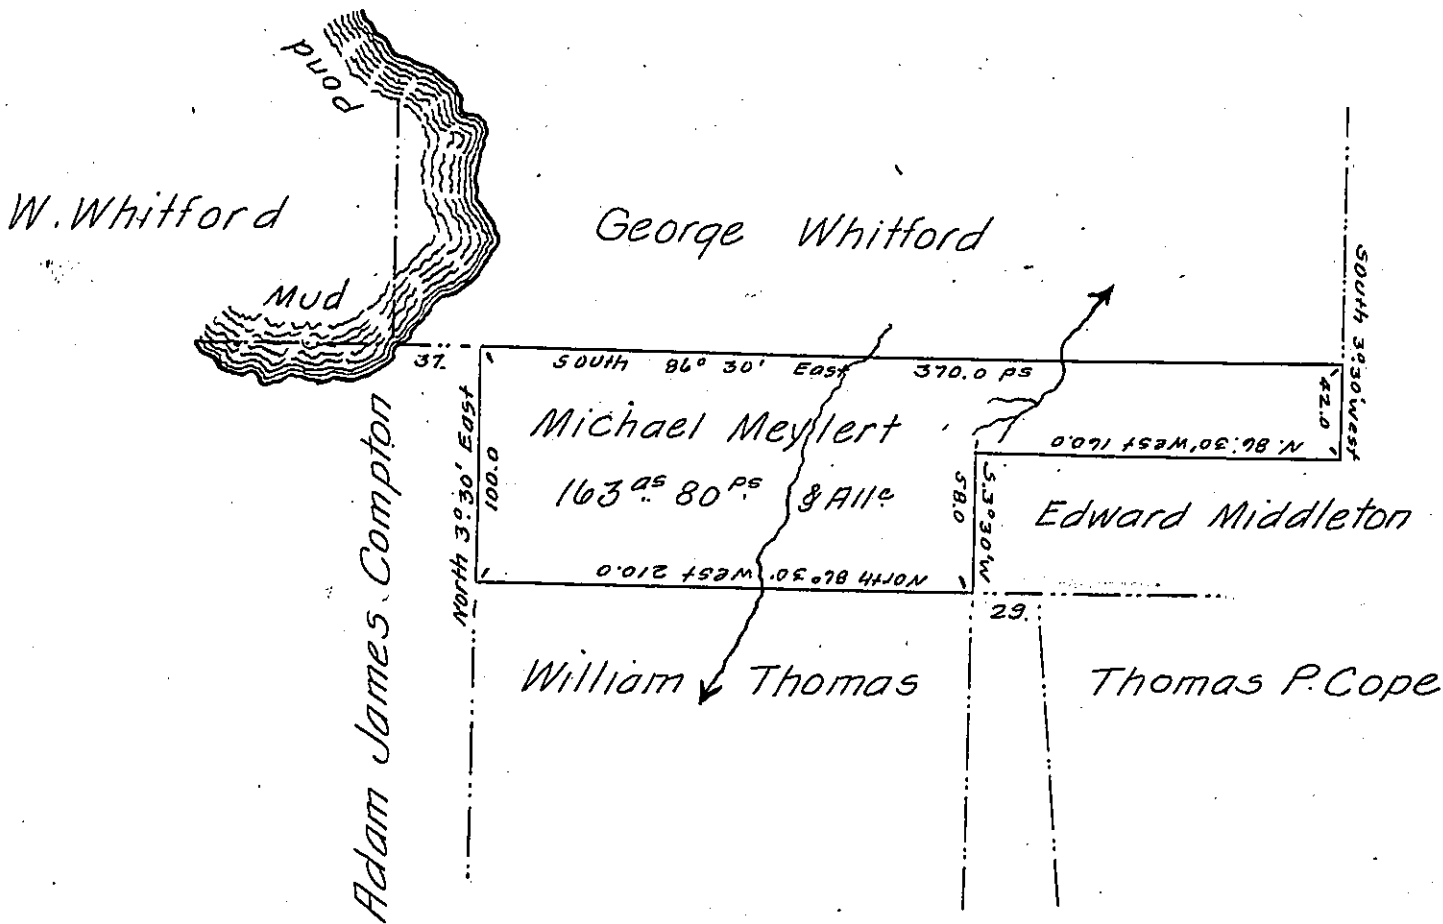 Pond
W. Whitford
George Whitford
Mud
37.
South 86° 30' East 370.0 ps
South 3°30' West
42.0
N. 86°.30' West 160.0
Michael Meylert
163 as 80 ps & Allc
North 3°.30' East
100.0
58.0
S.3°30'W
Edward Middleton
North 86°30' West 210.0
29.
Adam James Compton
William Thomas
Thomas P. Cope